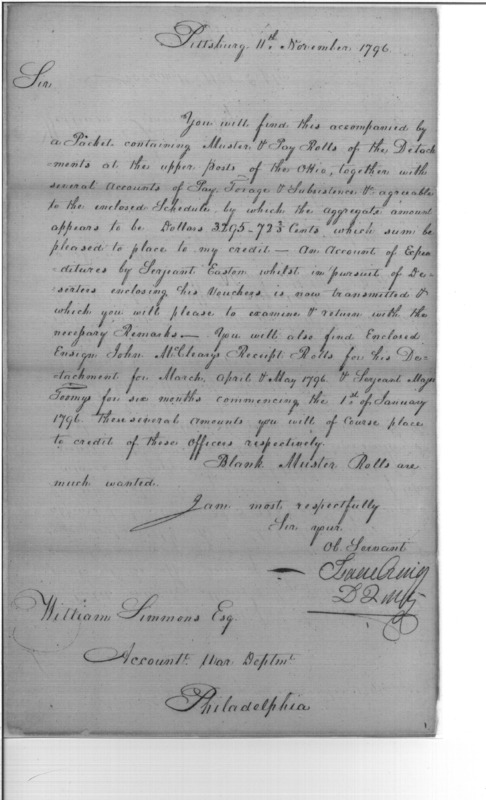 Pittsburg 11th November 1796
Sir
You will find this accompanied by
a Packet containing Muster & Pay Rolls of the Detach
ments at the upper posts of the Ohio, together with
several Accounts of Pay, Forage & Subsistence &c agreeable
to the enclosed Schedule, by which the aggregate amount
appears to be Dollars 3295-72 Cents, which sum be
pleased to place to my credit — An Account of Expen
ditures by Serjeant Easton whilst in pursuit of De-
serters enclosing his Vouchers is now transmitted &
which you will please to examine & return with the
necessary Remarks — You will also find Enclosed
Ensign John McClearys Receipt Rolls for his De-
tachment for March, April & May 1796 & Serjeant Major
for six months commencing the 1st of January
1796 these several amounts you will of Course place
to credit of those Officers respectively
Blank Muster Rolls are
much wanted.
I am most respectfully
Sir your
Ob. Servant
Isaac Craig
D Q
William Simmons Esq
Accountt War Deptmt
Philadelphia